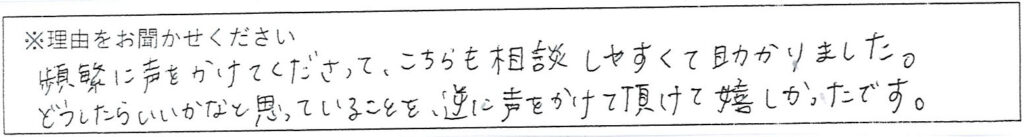 ※理由をお聞かせください
頻繁に声をかけてくださって、こちらも相談しやすくて助かりました。
どうしたらいいかなと思っていることを、逆に声をかけて頂けて嬉しかったです。